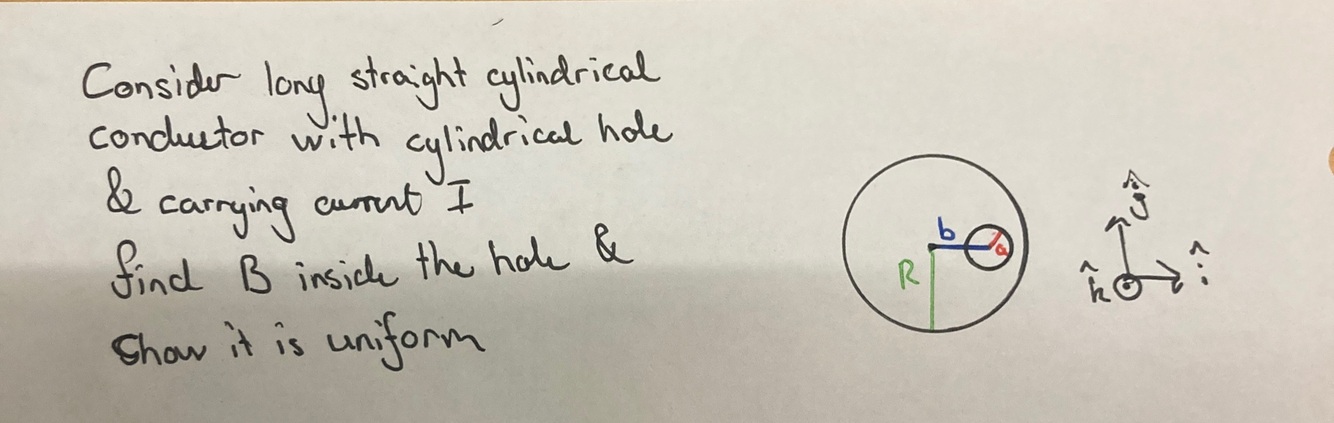 Consider long straight cylindrical
conductor with cylindrical hole
& carrying current I
find B inside the hole &
Show it is uniform
b
a
R
ĵ
î
k̂